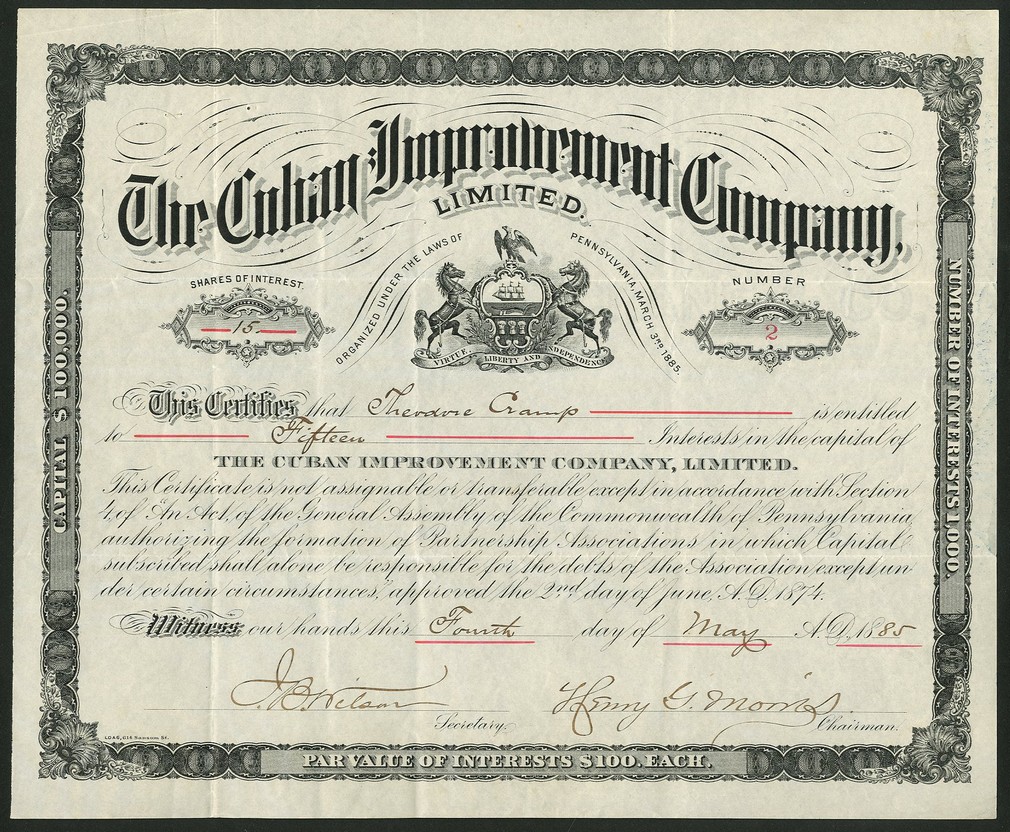 The Cuban Improvement Company,
LIMITED.
ORGANIZED UNDER THE LAWS OF PENNSYLVANIA, MARCH 3RD 1885.
SHARES OF INTEREST.
15
NUMBER
2
VIRTUE LIBERTY AND INDEPENDENCE
CAPITAL $100,000.
NUMBER OF INTERESTS 1,000.
This Certifies that Theodore Cramp is entitled
to Fifteen Interests in the capital of
THE CUBAN IMPROVEMENT COMPANY, LIMITED.
This Certificate is not assignable or transferable except in accordance with Section
4, of "An Act, of the General Assembly of the Commonwealth of Pennsylvania,
authorizing the formation of Partnership Associations in which Capital
subscribed shall alone be responsible for the debts of the Association except un-
der certain circumstances," approved the 2nd day of June, A.D. 1874.
Witness our hands this Fourth day of May A.D. 1885
J. B. Wilson Henry G. Morris
Secretary. Chairman.
PAR VALUE OF INTERESTS $100. EACH.